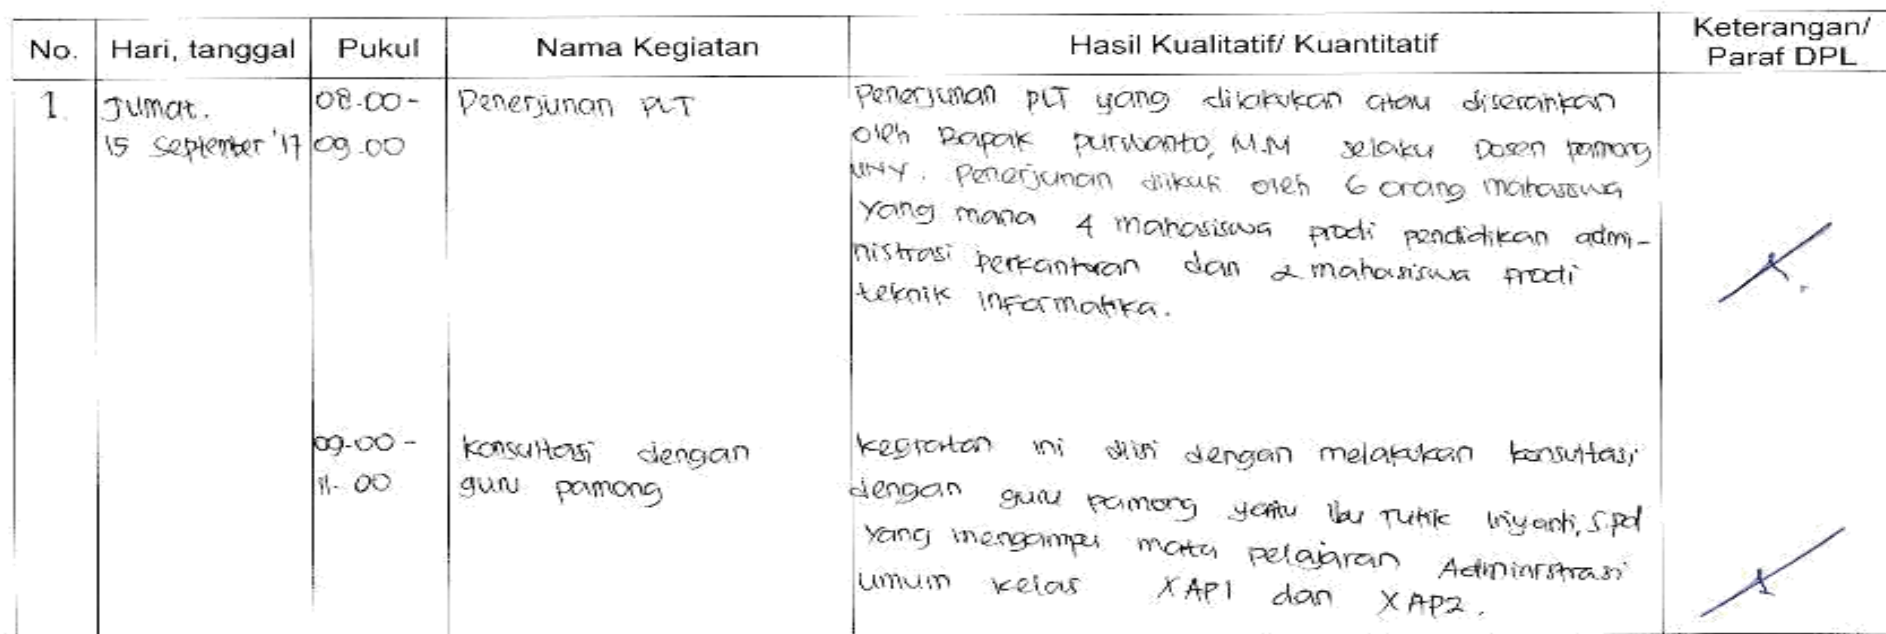 No. Hari, tanggal Pukul Nama Kegiatan Hasil Kualitatif/ Kuantitatif Keterangan/
Paraf DPL
1. Jumat. 08.00- Penerjunan PLT Penerjunan PLT yang dilakukan atau diserahkan
15 September '17 09.00 oleh Bapak Purwanto, M.M selaku Dosen pamong
UNY. Penerjunan diikuti oleh 6 orang mahasiswa
yang mana 4 mahasiswa prodi pendidikan admi-
nistrasi perkantoran dan 2 mahasiswa prodi
teknik informatika.
09.00 - Konsultasi dengan kegiatan ini diisi dengan melakukan konsultasi
11.00 guru pamong dengan guru pamong yaitu ibu Tutik Iriyanti, S.Pd
yang mengampu mata pelajaran Administrasi
umum kelas X AP1 dan X AP2.